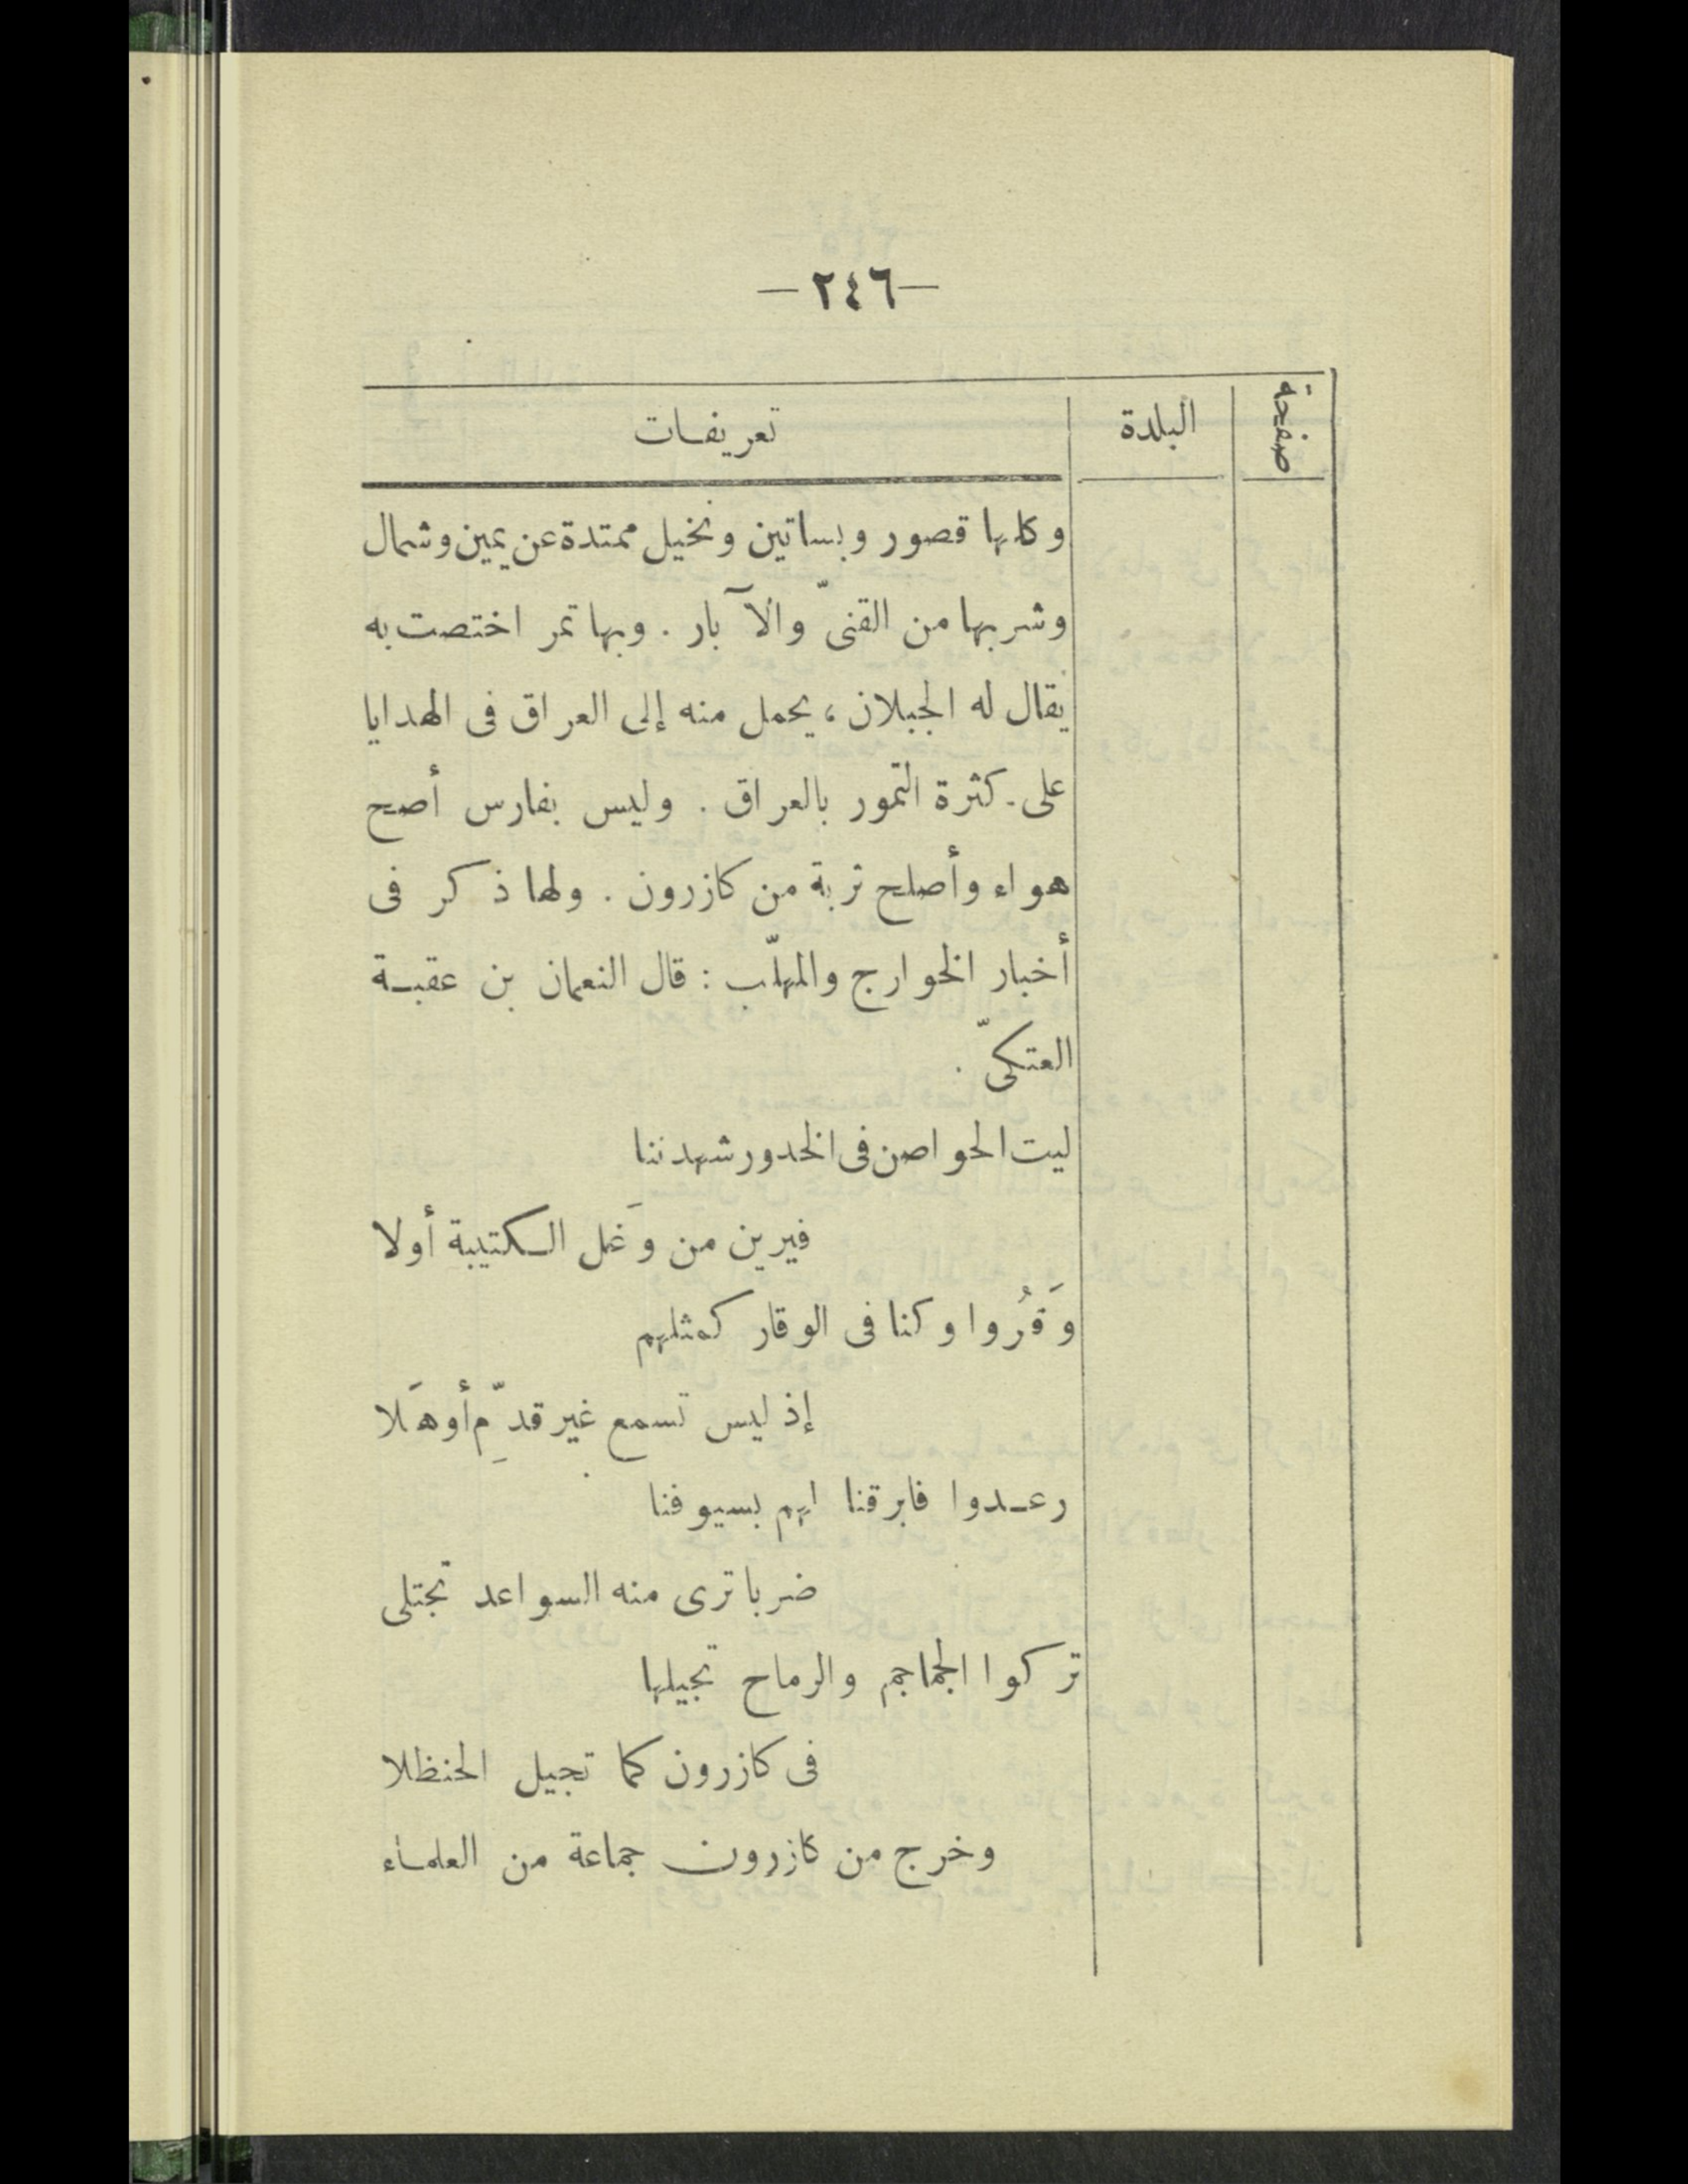 —٢٤٦—
صفحة البلدة تعريفات
وكلها قصور وبساتين ونخيل ممتدة عن يمين وشمال
وشربها من القنىّ والآبار . وبها تمر اختصت به
يقال له الجبلان ، يحمل منه إلى العراق فى الهدايا
على كثرة التمور بالعراق . وليس بفارس أصح
هواء وأصلح تربة من كازرون . ولها ذكر فى
أخبار الخوارج والمهلّب : قال النعمان بن عقبة
العتكىّ .
ليت الحواصن فى الخدور شهدننا
فيرين من وَغل الكتيبة أولا
وَقرُوا وكنا فى الوقار كمثلهم
إذ ليس تسمع غير قدِّم أو هَلا
رعدوا فابرقنا لهم بسيوفنا
ضربا ترى منه السواعد تجتلى
تركوا الجماجم والرماح تجيلها
فى كازرون كما تجيل الحنظلا
وخرج من كازرون جماعة من العلماء